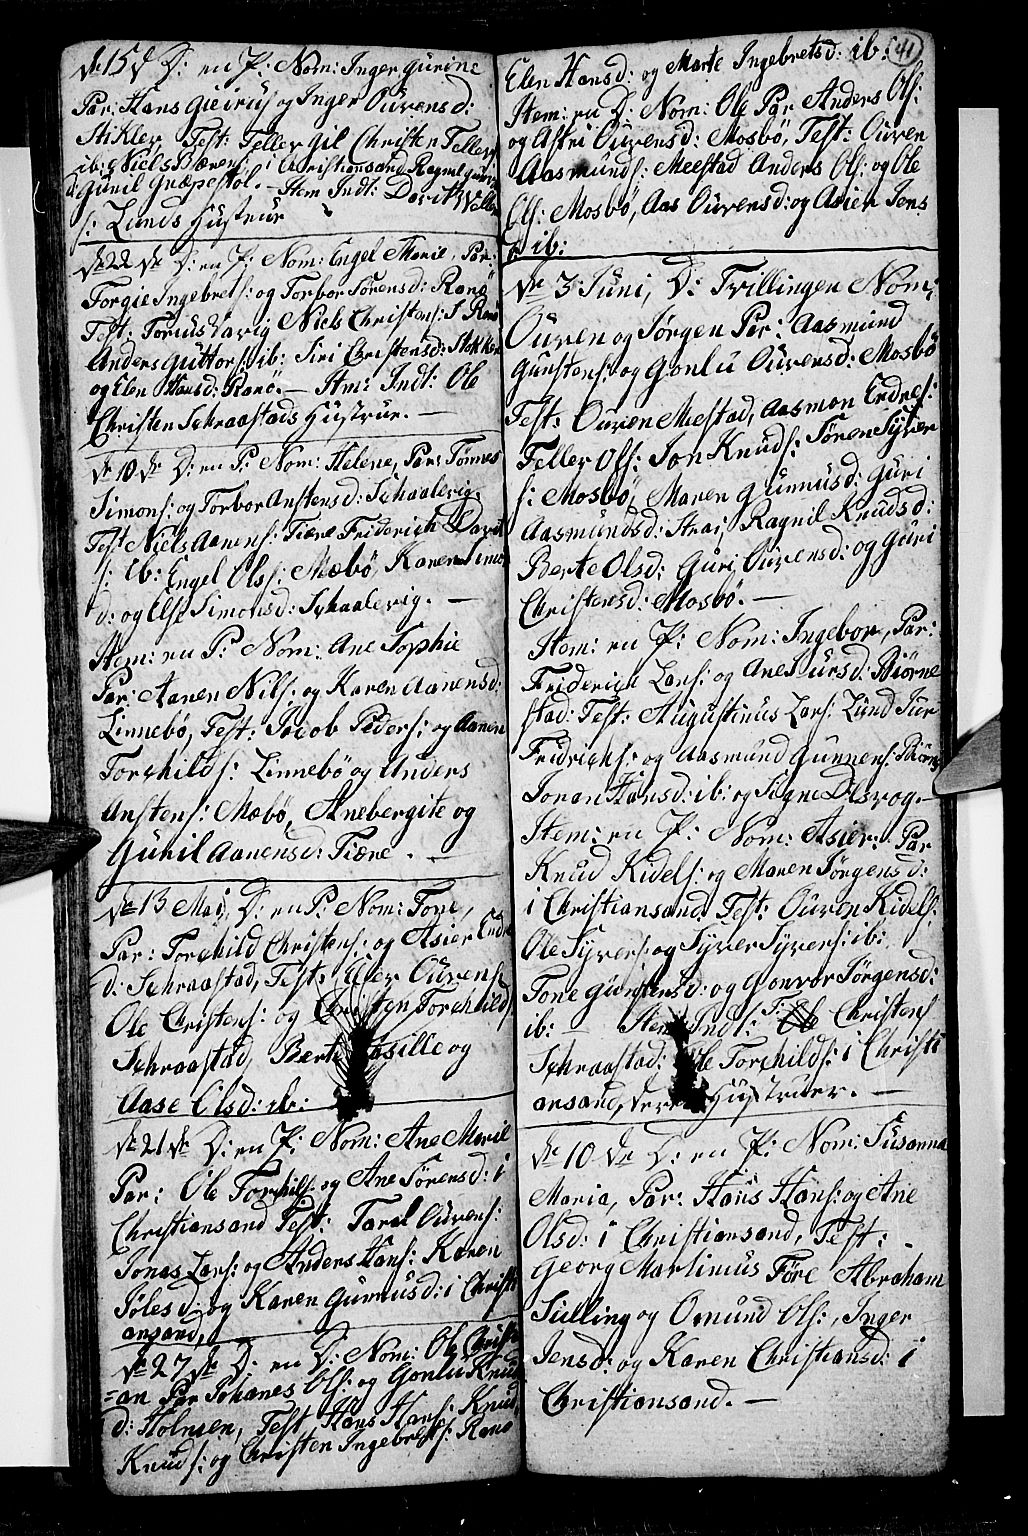 de 15 de D: en P: Nom: Inger Gurine
Par: Hans Gieiruf og Inger Ouvensd:
Stikler, Test: Teller Gil Christen Tellefs:
ib: Niels Bærens: i Christiansand Ragnil
Gunil Gnæpestøl. — Item Indl: Davit Wollen
s: Lunds Hustrue
de 22 de D: en P: Nom: Engel Marie, Par:
Torgie Ingebrets: og Torbor Sørensd: Ranø
Test: Torius Varvig Niels Christens: Ranø
Anders Guttors: ib: Siri Christensd: Stokken
og Elen Hansd: Ranø. — Item: Indl: Ole
Christen Schraastads Hustrue. —
de 10 de D: en P: Nom: Helene, Par: Tønnes
Simons: og Torbor Anstensd: Schaalevig.
Test Niels Aanens: Tiæne Friderich David
s: ib: Engel Ols: Mæbø, Karen
d: og Else Simonsd: Schaalevig. —
Item: en P: Nom: Ane Sophie
Par: Aanen Nils: og Karen Aanensd:
Linnebø, Test: Jacob Peders: og Aanen
Torchilds: Linnebø og Anders
Anstens: Mæbø, Anebergite og
Guril Aanensd: Tiæne. —
de 13 Maj, D: en P: Nom: Tone,
Par: Torchild Christens: og Asier Endre
d: Schraastad, Test: Ouvens
Ole Christens: og Christen Torchilds
Schraastad, Berte Sille og
Aase Olsd: ib:
de 21 de D: en P: Nom: Ane Marie
Par: Ole Torchils: og Ane Sørensd: i
Christiansand Test: Tarel Ouvens:
Jonas Lars: og Anders Hans: Karen
Joles d: og Karen Gunnusd: i Christi
ansand,
de 27 de D: en D: Nom: Ole Christi
=an Par Johanes Ols: og Gonlu Knud
d: Holmen, Test Hans Hans: Knud
Knuds: og Christen Ingebrets: Ranø
41
Elen Hansd: og Marte Ingebretsd: ib:
Item: en D: Nom: Ole Par Anders Ols:
og Astri Ouvensd: Mosbø, Test: Ouven
Aasmunds: Meestad Anders Ols: og Ole
Ols: Mosbø, Aas Ouvensd: og Asien Jens
ib:
de 3 Juni, D: Tvillingen Nom:
Ouven og Jørgen Par: Aasmund
Gunstens: og Gonlu Ouvensd: Mosbø
Test: Ouven Meestad, Aasmon Endres:
Tellef Ols: Jon Knuds: Søren Syver
s: Mosbø, Maren Gunnusd: Guri
Aasmundsd: Strai, Ragnil Knudsd:
Berte Olsd: Guri Ouvensd: og Guri
Christensd: Mosbø. —
Item: en P: Nom: Ingebor, Par:
Friderich Lars: og Ane Iursd: Biørne
stad: Test: Augustinus Lars: Lund Iur
Fridrichs: og Aasmund Gunners: Biørns
Jonan Hansd: ib: og Signe Olsvog. —
Item: en P: Nom: Asier: Par
Knud Kidels: og Maren Jørgensd:
i Christiansand, Test: Ouven Kidels:
Ole Syvers: og Syver Syvers: ib:
Tone Gunstensd: og Gonvor Jørgensd:
ib: Item Indl: Christens
Schraastad: Ole Torchilds: i Christi
ansand, deres Hustruer. —
de 10 de D: en P: Nom: Susanna
Maria, Par: Hans Hans: og Ane
Olsd: i Christiansand, Test:
Georg Martinius Føre Abraham
Sulling og Omund Ols:, Inger
Jensd: og Karen Christiansd: i
Christiansand. —